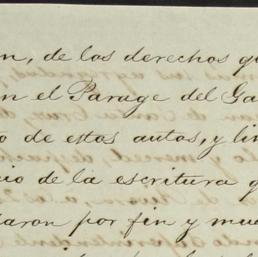 n, de los derechos qu
n el Parage del Ga
o de estos autos, y lin
io de la escritura q
laron por fin y mue